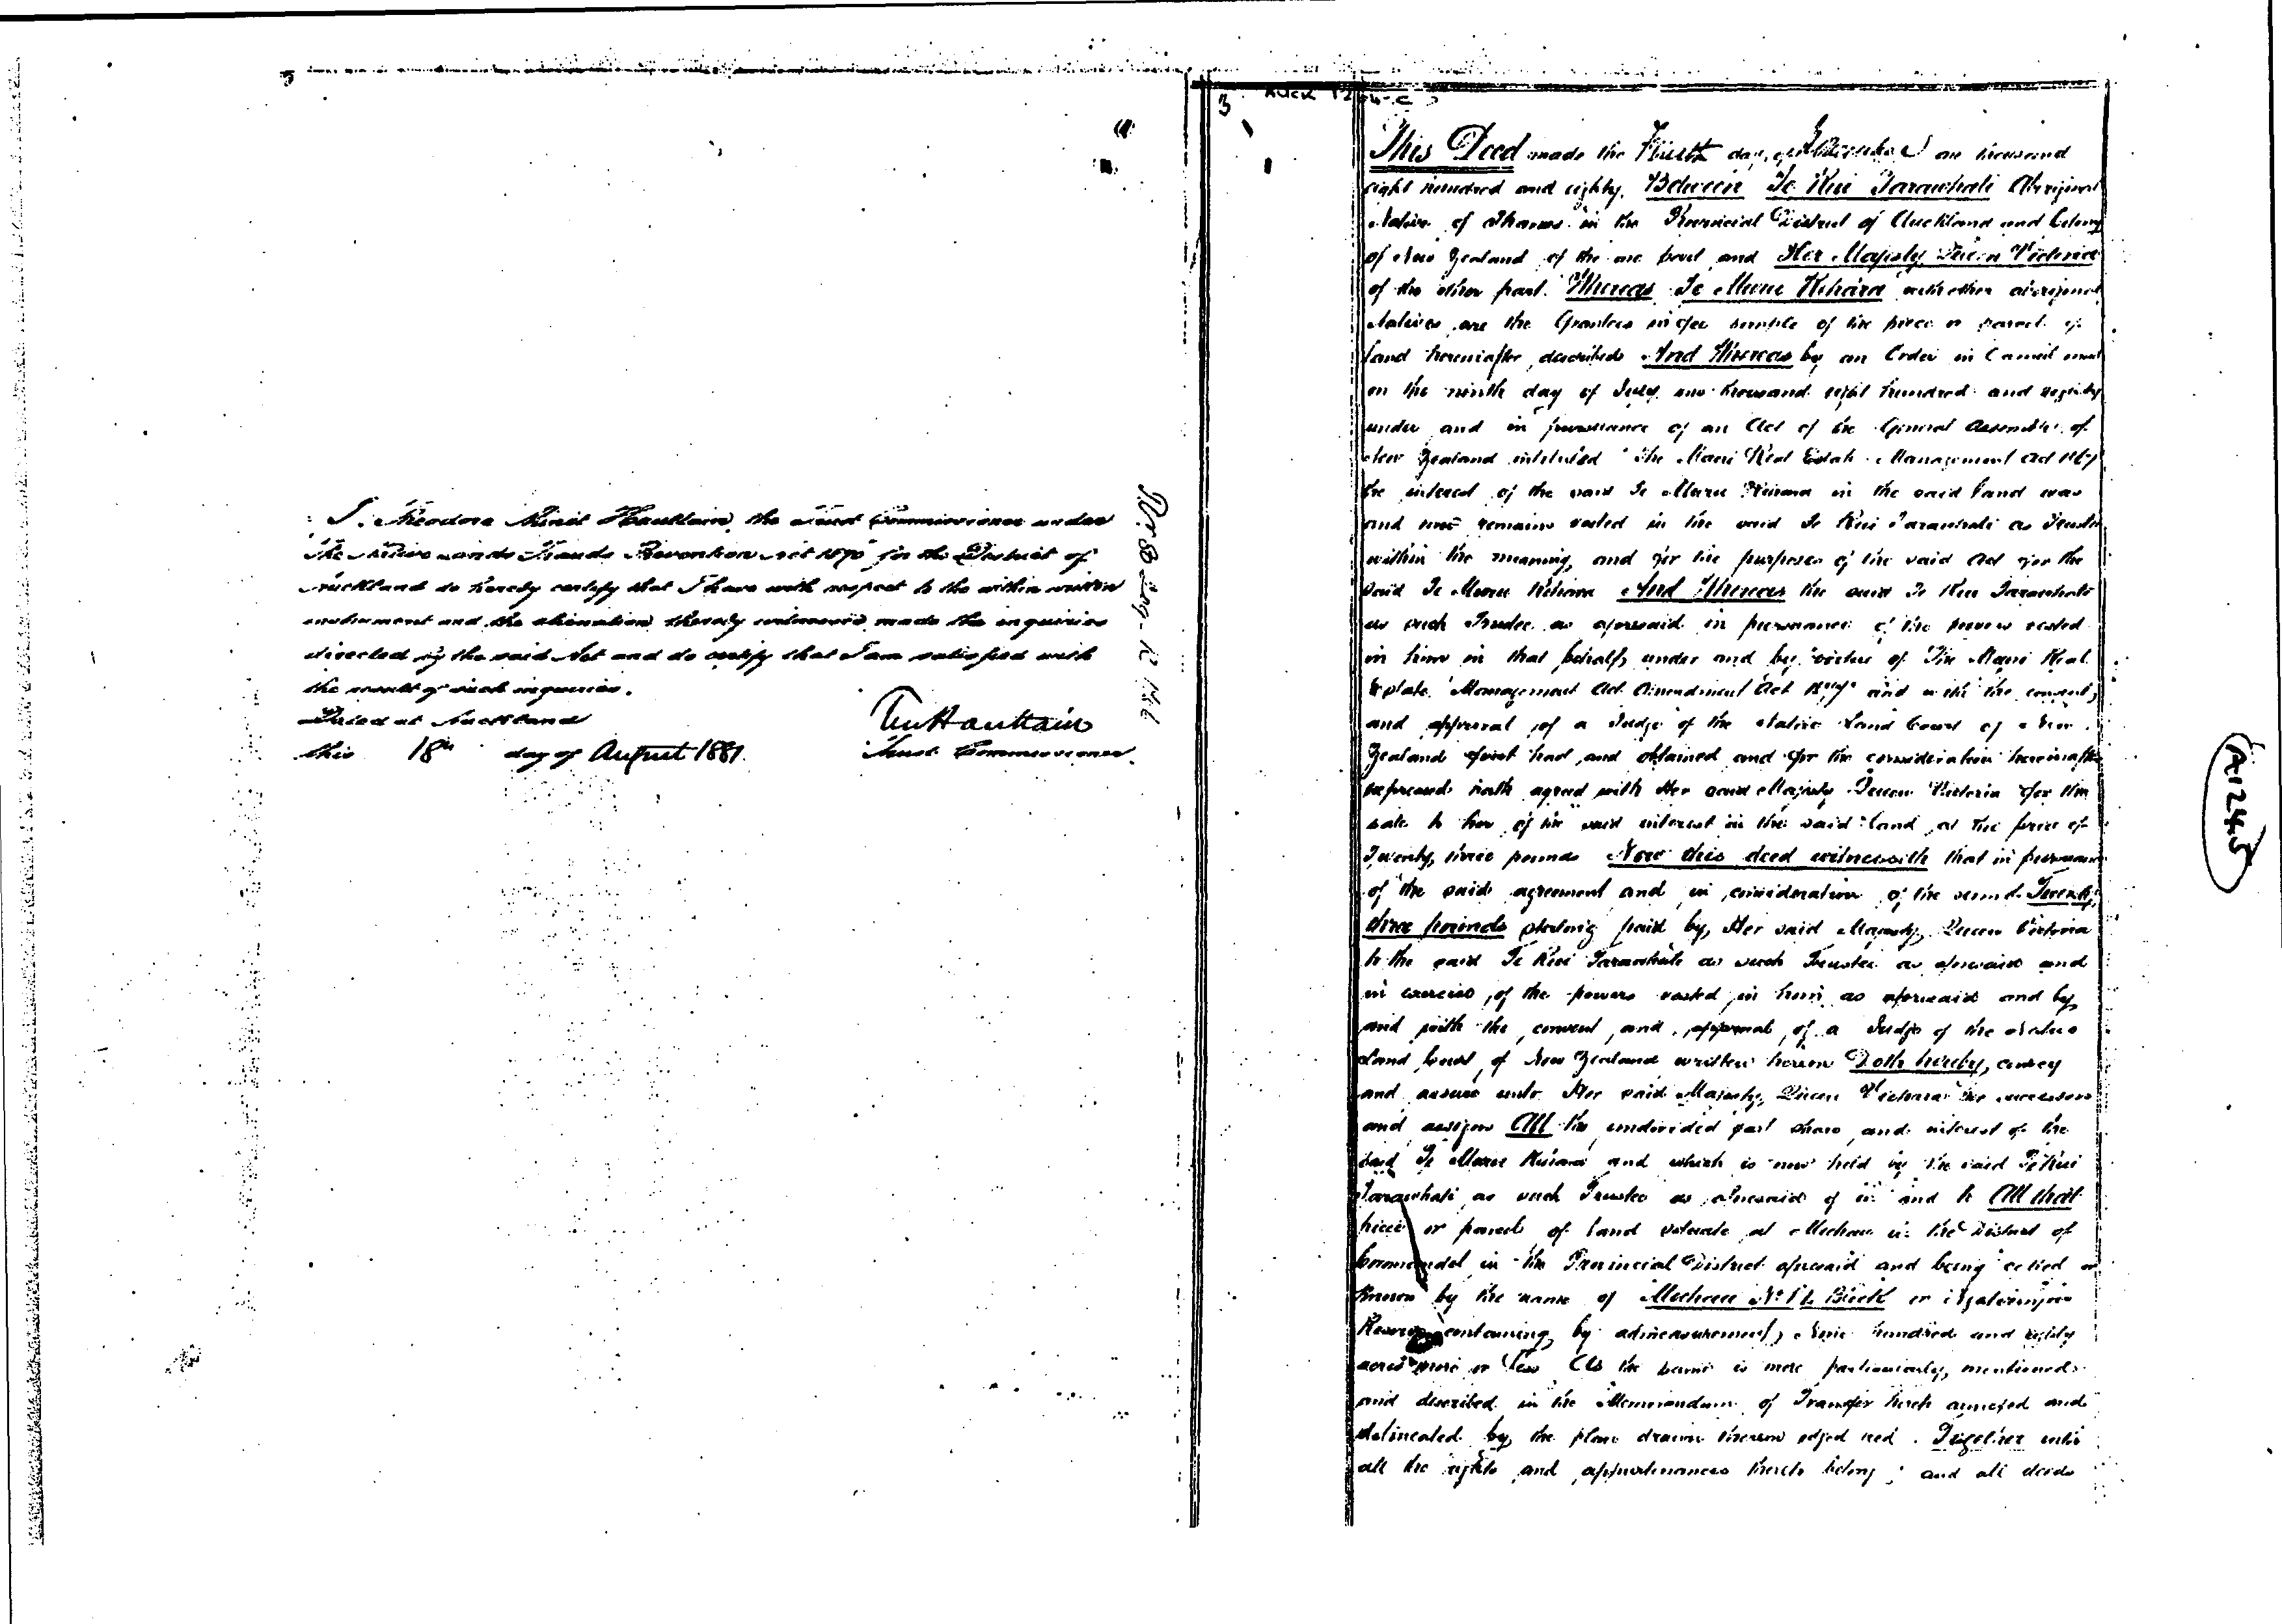 I, Theodore Minet Haultain, the Trust Commissioner under
"The Native Lands Frauds Prevention Act 1870" for the District of
Auckland do hereby certify that I have with respect to the within written
instrument and the alienation thereby witnessed made the inquiries
directed by the said Act and do certify that I am satisfied with
the result of such inquiries.
Dated at Auckland
this 18th day of August 1881.
TM Haultain
Trust Commissioner.
3
This Deed made the day of one thousand
eight hundred and eighty Between Te Kui Tarawhati Aboriginal
Native of Thames in the Provincial District of Auckland and Colony
of New Zealand of the one part and Her Majesty Queen Victoria
of the other part. Whereas Te Meru with other aboriginal
Natives are the Grantees in fee simple of the piece or parcel of
land hereinafter described And Whereas by an Order in Council made
on the ninth day of July one thousand eight hundred and eighty
under and in pursuance of an Act of the General Assembly of
New Zealand intituled "The Maori Real Estate Management Act 1867
the interest of the said Te in the said land was
and now remains vested in the said Te Kui Tarawhati as Trustee
within the meaning, and for the purposes of the said Act for the
said Te And Whereas the said Te Kui Tarawhati
as such Trustee as aforesaid in pursuance of the powers vested
in him in that behalf, under and by virtue of The Maori Real
Estate Management Act Amendment Act and with the consent,
and approval of a Judge of the Native Land Court of New
Zealand first had and obtained and for the consideration hereinafter
expressed hath agreed with Her said Majesty Queen Victoria for the
sale to her of the said interest in the said land at the price of
Twenty three pounds Now this deed witnesseth that in pursuance
of the said agreement and in consideration of the sum of Twenty
three pounds sterling paid by Her said Majesty Queen Victoria
to the said Te Kui Tarawhati as such Trustee as aforesaid and
in exercise of the powers vested in him as aforesaid and by
and with the consent and approval of a Judge of the Native
Land Court of New Zealand written hereon Doth hereby convey
and assure unto Her said Majesty Queen Victoria her successors
and assigns All the undivided part share and interest of the
said Te and which is now held by the said Te Kui
Tarawhati as such Trustee as aforesaid of in and to All that
piece or parcel of land situate at in the District of
Coromandel in the Provincial District aforesaid and being called or
known by the name of Block or
Reserve containing by admeasurement, Nine hundred and eighty
acres more or less As the same is more particularly mentioned
and described in the Memorandum of Transfer hereto annexed and
delineated by the plan drawn thereon edged red. Together with
all the rights and appurtenances thereto belong: and all deeds
A1245